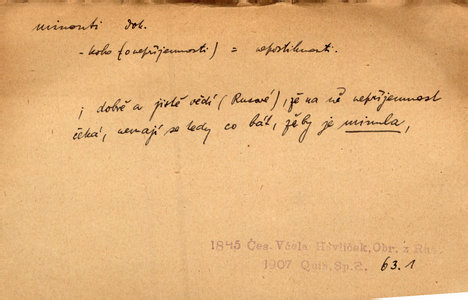 minouti dok.
- koho (o nepříjemnosti) = nepostihnouti.
; dobře a jistě vědí (Rusové), že na ně nepříjemnost
čeká, nemají se tedy co bát, žěby je minula,
1845 Čes. Včela Havlíček, Obr. z Rus.
1907 Quis, Sp. 2. 63.1